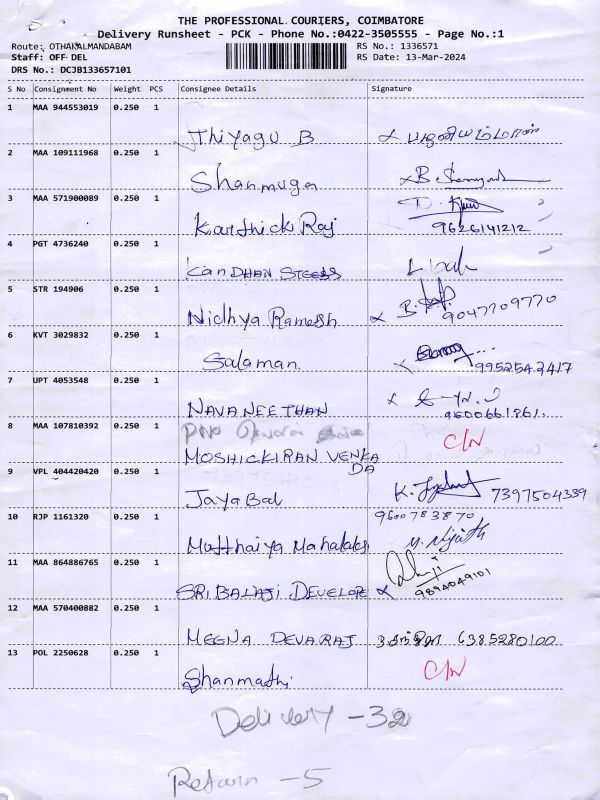 THE PROFESSIONAL COURIERS, COIMBATORE
Delivery Runsheet - PCK - Phone No.:0422-3505555 - Page No.:1
Route: OTHAKALMANDABAM
RS No.: 1336571
Staff: OFF DEL
RS Date: 13-Mar-2024
DRS No.: DCJB133657101
S No Consignment No Weight PCS Consignee Details Signature
1 MAA 944553019 0.250 1
Thiyagu B
2 MAA 109111968 0.250 1
Shanmuga B.
3 MAA 571900089 0.250 1
Karthick Raj 9626141212
4 PGT 4736240 0.250 1
KANDHAN STEELS
5 STR 194906 0.250 1
Nidhya Ramesh 9047709770
6 KVT 3029832 0.250 1
Salaman. 9952542417
7 UPT 4053548 0.250 1
NAVANEETHAN 9500661861.
8 MAA 107810392 0.250 1
C/N
MOSHICKIRAN VENKA
DA
9 VPL 404420420 0.250 1
Jayabal K. 7397504339
10 RJP 1161320 0.250 1
9600783870
Mutthaiya Mahalaks
11 MAA 864886765 0.250 1
SRI BALAJI DEVELOPE 9894049101
12 MAA 570400882 0.250 1
MEGNA DEVARAJ 6385280100
13 POL 2250628 0.250 1
Shanmathi C/N
Delivery - 32
Return - 5